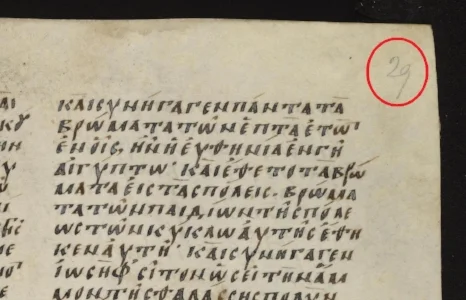 29
ΚΑΙ ΣΥΝΗΓΑΓΕΝ ΠΑΝΤΑ ΤΑ
ΒΡΩΜΑΤΑ ΤΩΝ ΕΠΤΑ ΕΤΩ
ΕΝ ΟΙΣ ΗΝ Η ΕΥΘΗΝΙΑ ΕΝ ΓΗ
ΑΙΓΥΠΤΩ· ΚΑΙ ΕΘΕΤΟ ΤΑ ΒΡΩ
ΜΑΤΑ ΕΙΣ ΤΑΣ ΠΟΛΕΙΣ· ΒΡΩΜΑ
ΤΑ ΤΩΝ ΠΑΙΔΙΩΝ ΤΗΣ ΠΟΛΕ
ΩΣ ΤΩΝ ΚΥΚΛΩ ΑΥΤΗΣ ΕΘΗ
ΚΕΝ ΑΥΤΗ· ΚΑΙ ΣΥΝΗΓΑΓΕΝ
ΙΩΣΗΦ ΣΙΤΟΝ ΩΣΕΙ ΤΗΝ ΑΜ
ΜΟΝ ΤΗΣ ΘΑΛΑΣΣΗΣ ΠΟΛΥΝ